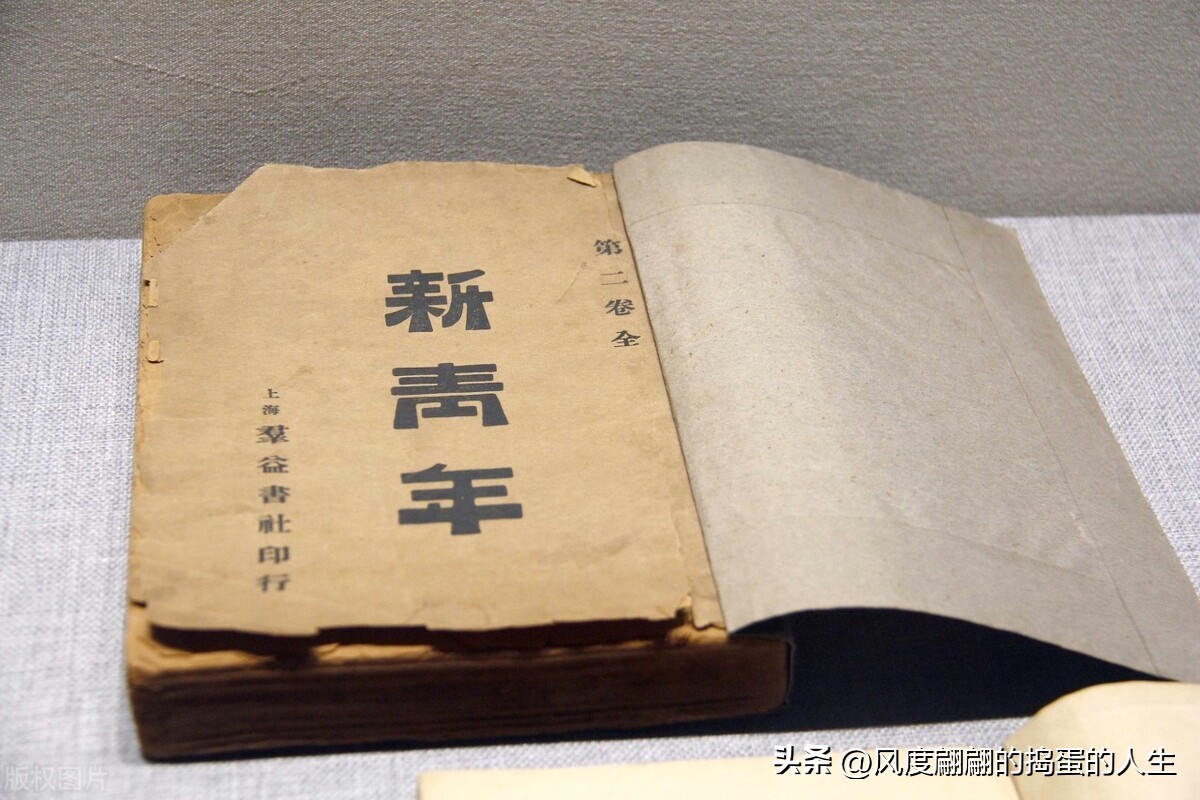 第二卷全
新青年
上海羣益書社印行
头条 @风度翩翩的捣蛋的人生
版权图片